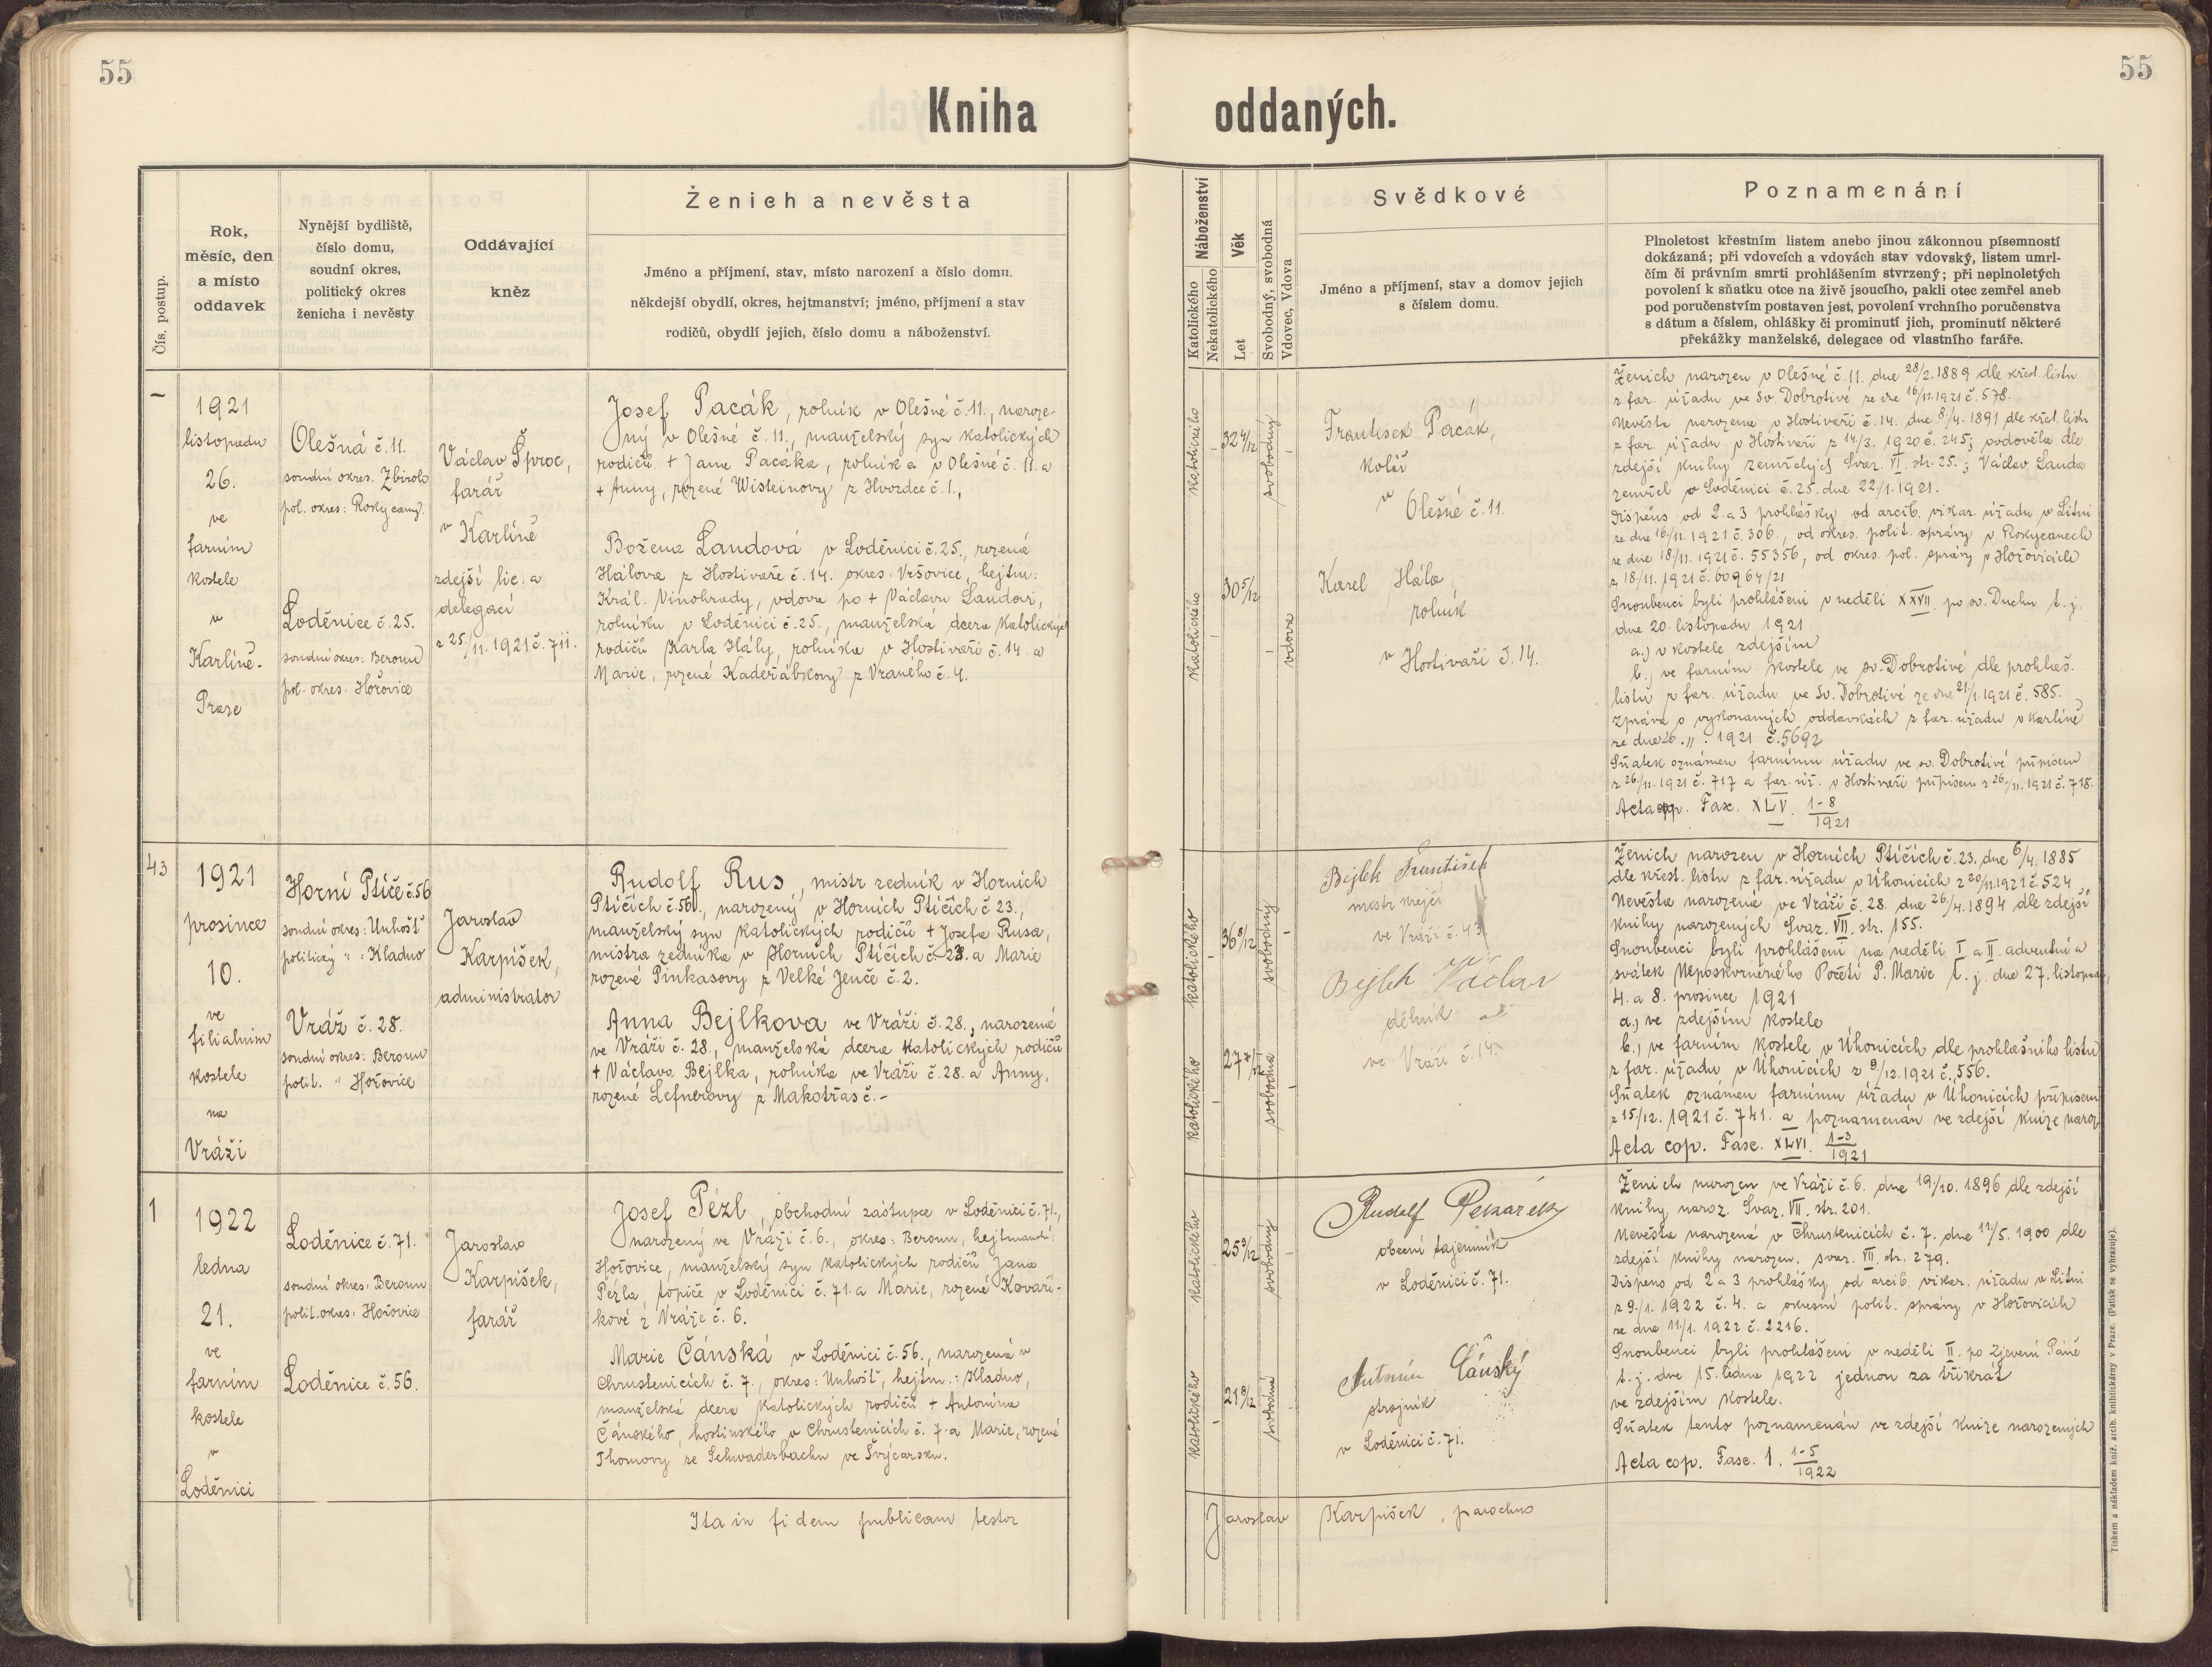 55
Kniha
Čís. postup.
Rok,
měsíc, den
a místo
oddavek
Nynější bydliště,
číslo domu,
soudní okres,
politický okres
ženicha i nevěsty
Oddávající
kněz
Ženich a nevěsta
Jméno a příjmení, stav, místo narození a číslo domu.
někdejší obydlí, okres, hejtmanství; jméno, příjmení a stav
rodičů, obydlí jejich, číslo domu a náboženství.
–
1921
listopadu
26.
ve
farním
kostele
v
Karlíně-
Praze
Olešná č. 11.
soudní okres. Zbiroh
pol. okres: Rokycany.
Loděnice č. 25.
soudní okres: Beroun
pol. okres. Hořovice
Václav Šproc,
farář
v Karlíně
zdejší lic. a
delegací
z 25./11. 1921 č. 711.
Josef Pacák, rolník v Olešné č. 11., naroze-
ný v Olešné č. 11., manželský syn katolických
rodičů + Jana Pacáka, rolníka v Olešné č. 11. a
+ Anny, rozené Wisteinovy z Hvozdce č. 1.,
Božena Landová v Loděnici č. 25., rozená
Hálova z Hostivaře č. 14. okres. Vršovice, hejtm:
Král. Vinohrady, vdova po + Václavu Landovi,
rolníku v Loděnici č. 25., manželská dcera katolických
rodičů Karla Hály, rolníka v Hostivaři č. 14. a
Marie, rozené Kadeřábkovy z Vraného č. 4.
43
1921
prosince
10.
ve
filialním
kostele
na
Vráži
Horní Ptíče č. 56
soudní okres: Unhošť
politický " : Kladno
Vráž č. 28.
soudní okres: Beroun
polit. " Hořovice
Jaroslav
Karpíšek,
administrator
Rudolf Rus, mistr zedník v Horních
Ptíčích č. 56., narozený v Horních Ptíčích č. 23.,
manželský syn katolických rodičů + Josefa Rusa,
mistra zedníka v Horních Ptíčích č. 23. a Marie
rozené Pinkasovy z Velké Jenče č. 2.
Anna Bejlkova ve Vráži č. 28., narozená
ve Vráži č. 28., manželská dcera katolických rodičů
+ Václava Bejlka, rolníka ve Vráži č. 28. a Anny,
rozené Lefnerovy z Makotřas č. -
1
1922
ledna
21.
ve
farním
kostele
v
Loděnici
Loděnice č. 71.
soudní okres: Beroun
polit. okres: Hořovice
Loděnice č. 56.
Jaroslav
Karpíšek,
farář
Josef Pézl, obchodní zástupce v Loděnici č. 71.,
narozený ve Vráži č. 6., okres: Beroun, hejtmanst.:
Hořovice, manželský syn katolických rodičů Jana
Pézla, topiče v Loděnici č. 71. a Marie, rozené Kovaří-
kové z Vráže č. 6.
Marie Čánská v Loděnici č. 56., narozená v
Chrustenicích č. 7., okres: Unhošť, hejtm.: Kladno,
manželská dcera katolických rodičů + Antonína
Čánského, hostinského v Chrustenicích č. 7. a Marie, rozené
Thomovy ze Schwaderbachu ve Švýcarsku.
Ita in fidem publicam testor
55
oddaných.
Náboženství
Katolického
Nekatolického
Věk
Let
Svobodný, svobodná
Vdovec, Vdova
Svědkové
Jméno a příjmení, stav a domov jejich
s číslem domu.
Poznamenání
Plnoletost křestním listem anebo jinou zákonnou písemností
dokázaná; při vdovcích a vdovách stav vdovský, listem umrl-
čím či právním smrti prohlášením stvrzený; při neplnoletých
povolení k sňatku otce na živě jsoucího, pakli otec zemřel aneb
pod poručenstvím postaven jest, povolení vrchního poručenstva
s dátum a číslem, ohlášky či prominutí jich, prominutí některé
překážky manželské, delegace od vlastního faráře.
katolického
svobodný
katolického
30 5/12
vdova
František Pacák,
kolář
v
Olešné č. 11.
Karel Hála
rolník
v Hostivaři č. 14.
Ženich narozen v Olešné č. 11. dne 28/2. 1889 dle křest. listu
z far. úřadu ve Sv. Dobrotivé ze dne 16/11. 1921 č. 578.
Nevěsta narozena v Hostivaři č. 14. dne 8./4. 1891 dle křest. listu
z far. úřadu v Hostivaři z 14./3. 1920 č. 245; ovdověla dle
zdejší knihy zemřelých Svaz. VI. str. 25.; Václav Landa
zemřel v Loděnici č. 25. dne 22/1. 1921.
Dispens od 2. a 3 prohlášky od arcib. vikar. úřadu v Litni
ze dne 16/11. 1921 č. 306., od okres. polit. správy v Rokycanech
ze dne 18/11. 1921 č. 55356, od okres. pol. správy v Hořovicích
z 18/11. 1921 č. 60964/21
Snoubenci byli prohlášeni v neděli XXVII. po sv. Duchu t. j.
dne 20. listopadu 1921
a.) v kostele zdejším
b., ve farním kostele ve sv. Dobrotivé dle prohláš.
listu z far. úřadu ve Sv. Dobrotivé ze dne 21/1. 1921 č. 585.
Zpráva o vykonaných oddavkách z far. úřadu v Karlíně
ze dne 26. 11. 1921 č. 5692
Sňatek oznámen farnímu úřadu ve sv. Dobrotivé přípisem
z 26/11. 1921 č. 717 a far. úř. v Hostivaři přípisem z 26./11. 1921 č. 718.
Acta cop. Fasc. XLV. 1-8/1921
katolického
36 8/12
svobodný
katolického
27 7/12
svobodna
Bejlek František
mistr krejčí
ve Vráži č. 43
Bejlek Václav
dělník
ve Vráži č. 14.
Ženich narozen v Horních Ptíčích č. 23. dne 6/4. 1885
dle křest. listu z far. úřadu v Úhonicích z 20/11. 1921 č. 524
Nevěsta narozena ve Vráži č. 28. dne 26/4. 1894 dle zdejší
knihy narozených Svaz. VII. str. 155.
Snoubenci byli prohlášeni na neděli I a II adventní a
svátek Neposkvrněného Početí P. Marie t. j. dne 27. listopadu,
4. a 8. prosince 1921
a.) ve zdejším kostele
b.) ve farním kostele v Úhonicích dle prohlašního listu
z far. úřadu v Úhonicích z 9/12. 1921 č. 556.
Sňatek oznámen farnímu úřadu v Úhonicích přípisem
z 15/12. 1921 č. 741. a poznamenán ve zdejší knize naroz.
Acta cop. Fasc. XLVI. 1-3/1921
katolického
25 3/12
svobodný
katolického
21 8/12
svobodná
Rudolf Pekárek
obecní tajemník
v Loděnici č. 71.
Antonín Čánský
strojník
v Loděnici č. 71.
Ženich narozen ve Vráži č. 6. dne 19/10. 1896 dle zdejší
knihy naroz. Svaz. VII. str. 201.
Nevěsta narozená v Chrustenicích č. 7. dne 11/5. 1900 dle
zdejší knihy narozen. svaz. VII. str. 279.
Dispens od 2 a 3 prohlášky od arcib. vikar. úřadu v Litni
z 9./1. 1922 č. 4. a okresní polit. správy v Hořovicích
ze dne 11/1. 1922 č. 2216.
Snoubenci byli prohlášeni v neděli II. po Zjevení Páně
t. j. dne 15. ledna 1922 jednou za třikrát
ve zdejším kostele.
Sňatek tento poznamenán ve zdejší knize narozených
Acta cop. Fasc. 1. 1-5/1922
Jaroslav Karpíšek, parochus
Tiskem a nákladem kníž. arcib. knihtiskárny v Praze. (Patisk se vyhrazuje).